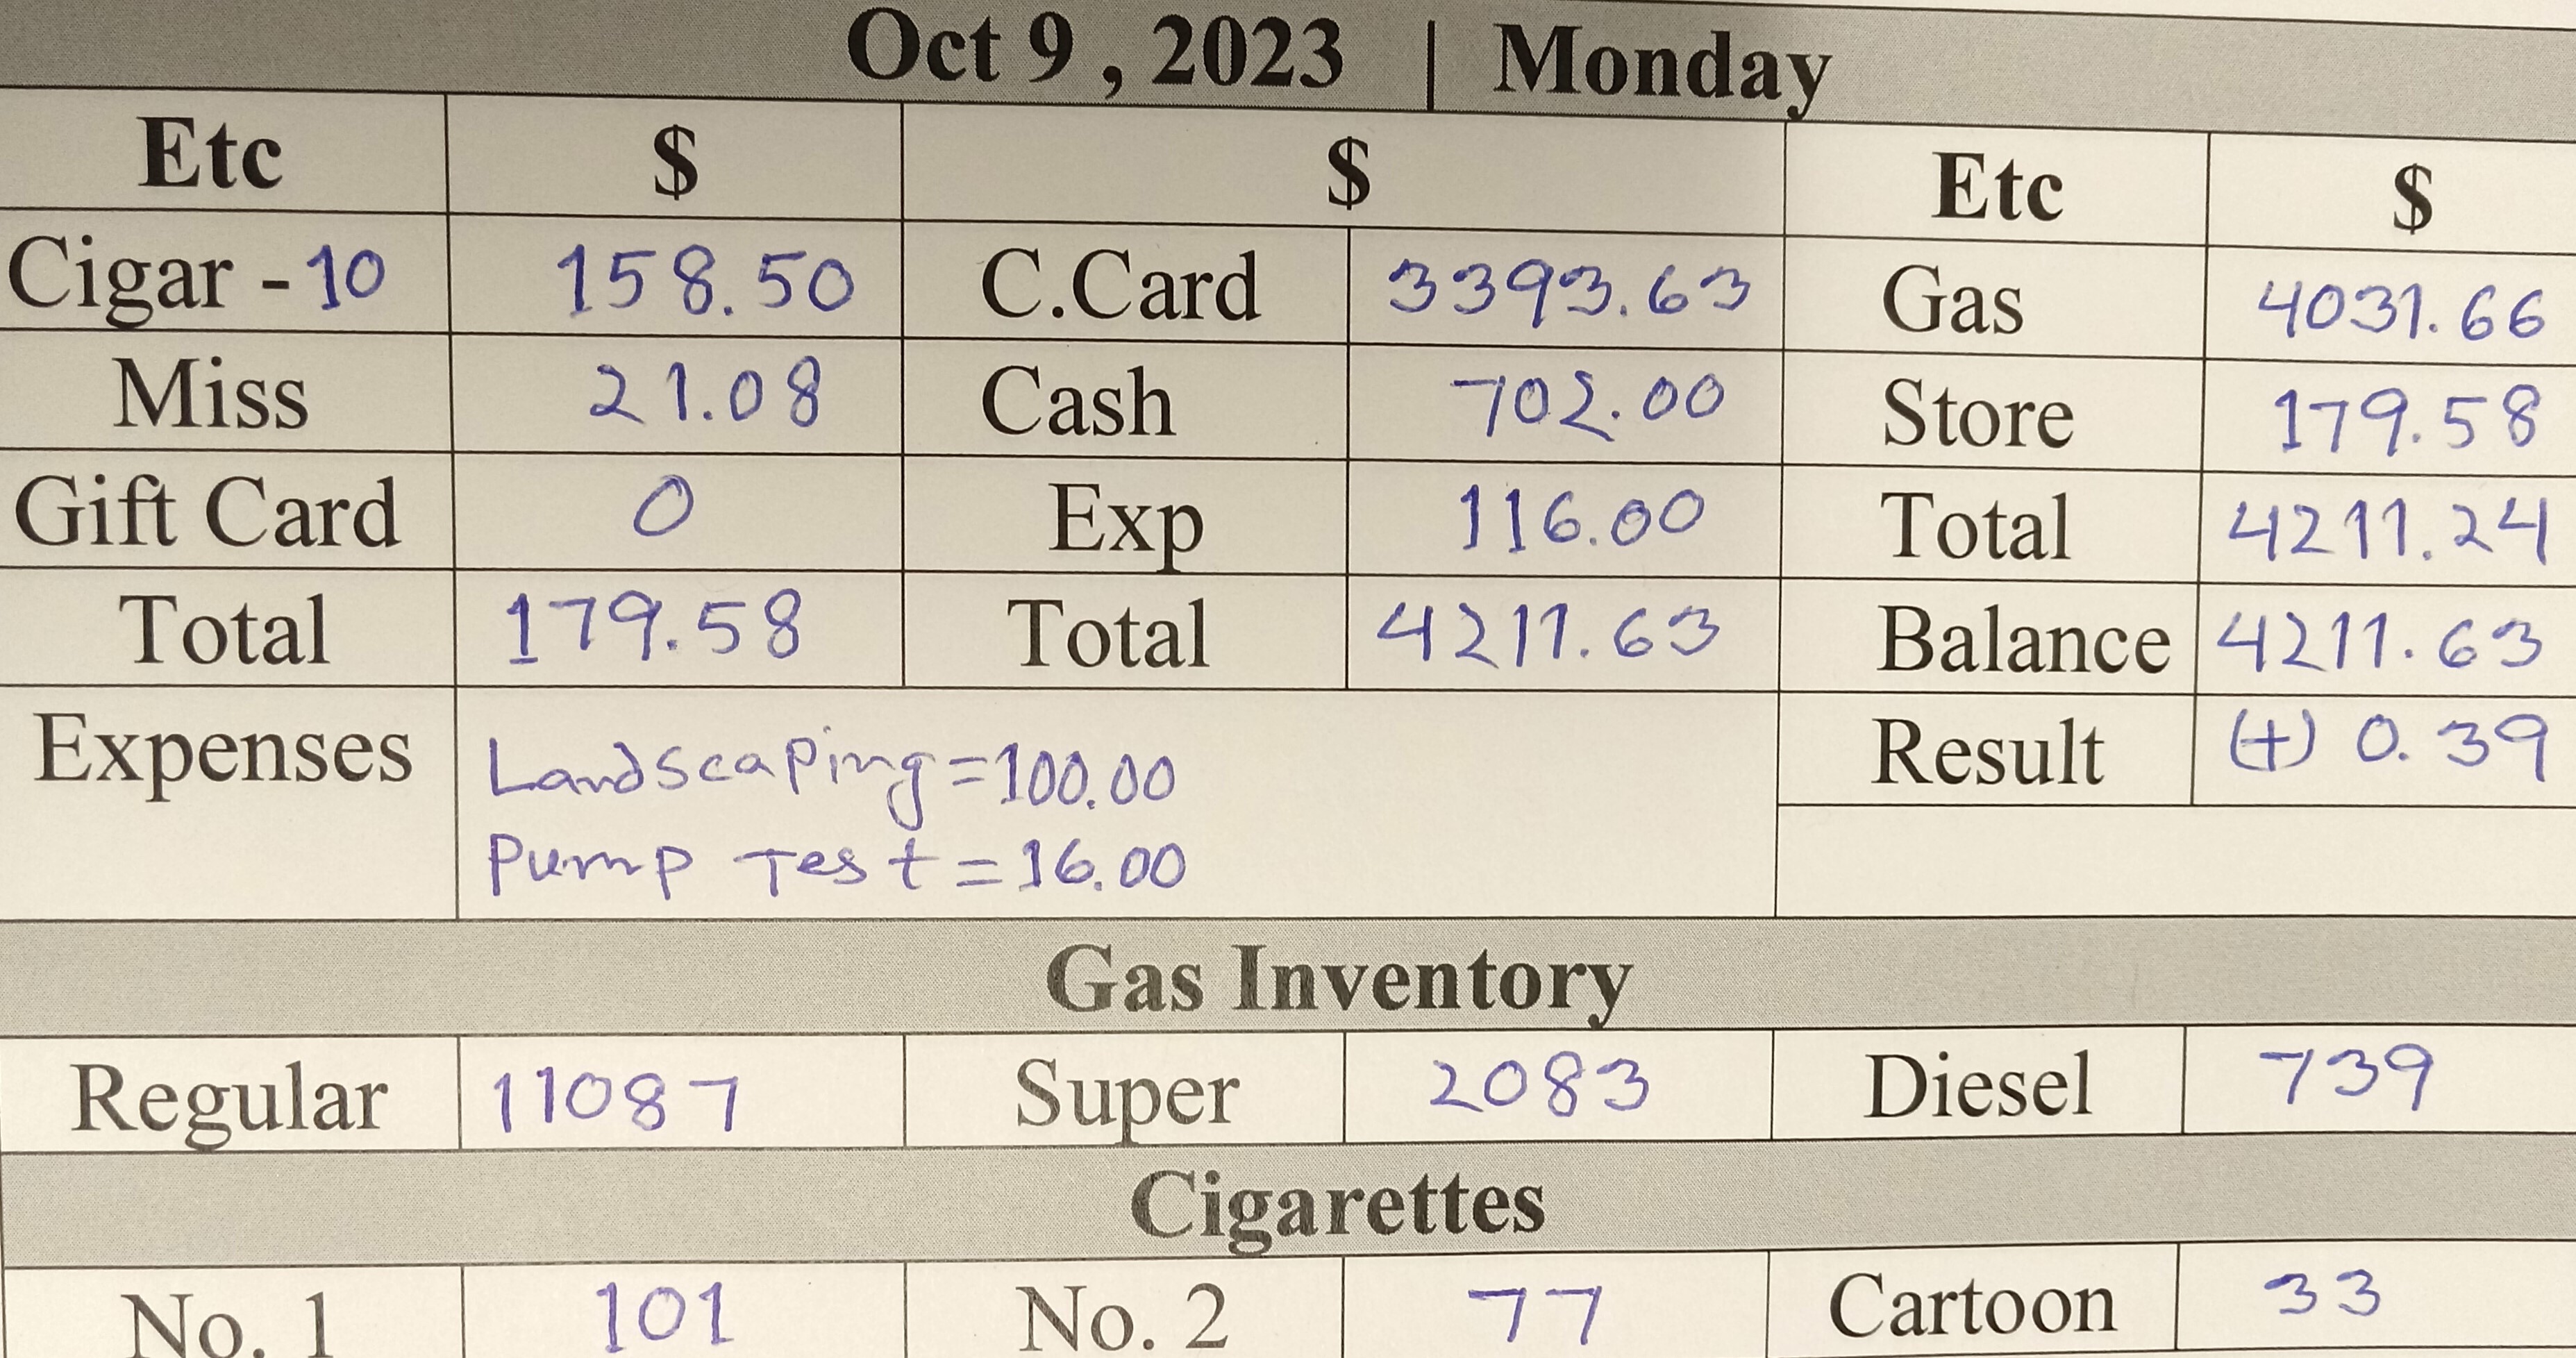 Oct 9 , 2023 | Monday
Etc $ $ Etc $
Cigar - 10 158.50 C.Card 3393.63 Gas 4031.66
Miss 21.08 Cash 702.00 Store 179.58
Gift Card 0 Exp 116.00 Total 4211.24
Total 179.58 Total 4211.63 Balance 4211.63
Expenses Landscaping=100.00 Result (+) 0.39
Pump Test=16.00
Gas Inventory
Regular 11087 Super 2083 Diesel 739
Cigarettes
No. 1 101 No. 2 77 Cartoon 33